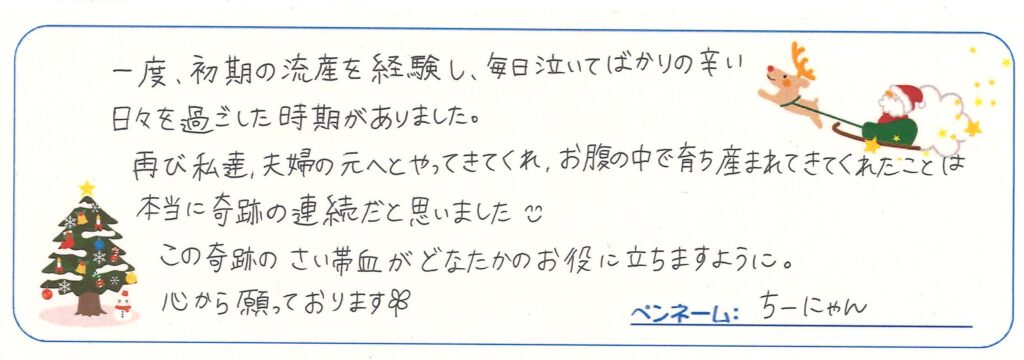 一度、初期の流産を経験し、毎日泣いてばかりの辛い
日々を過ごした時期がありました。
再び私達,夫婦の元へとやってきてくれ,お腹の中で育ち産まれてきてくれたことは
本当に奇跡の連続だと思いました
この奇跡のさい帯血がどなたかのお役に立ちますように。
心から願っております
ペンネーム: ちーにゃん